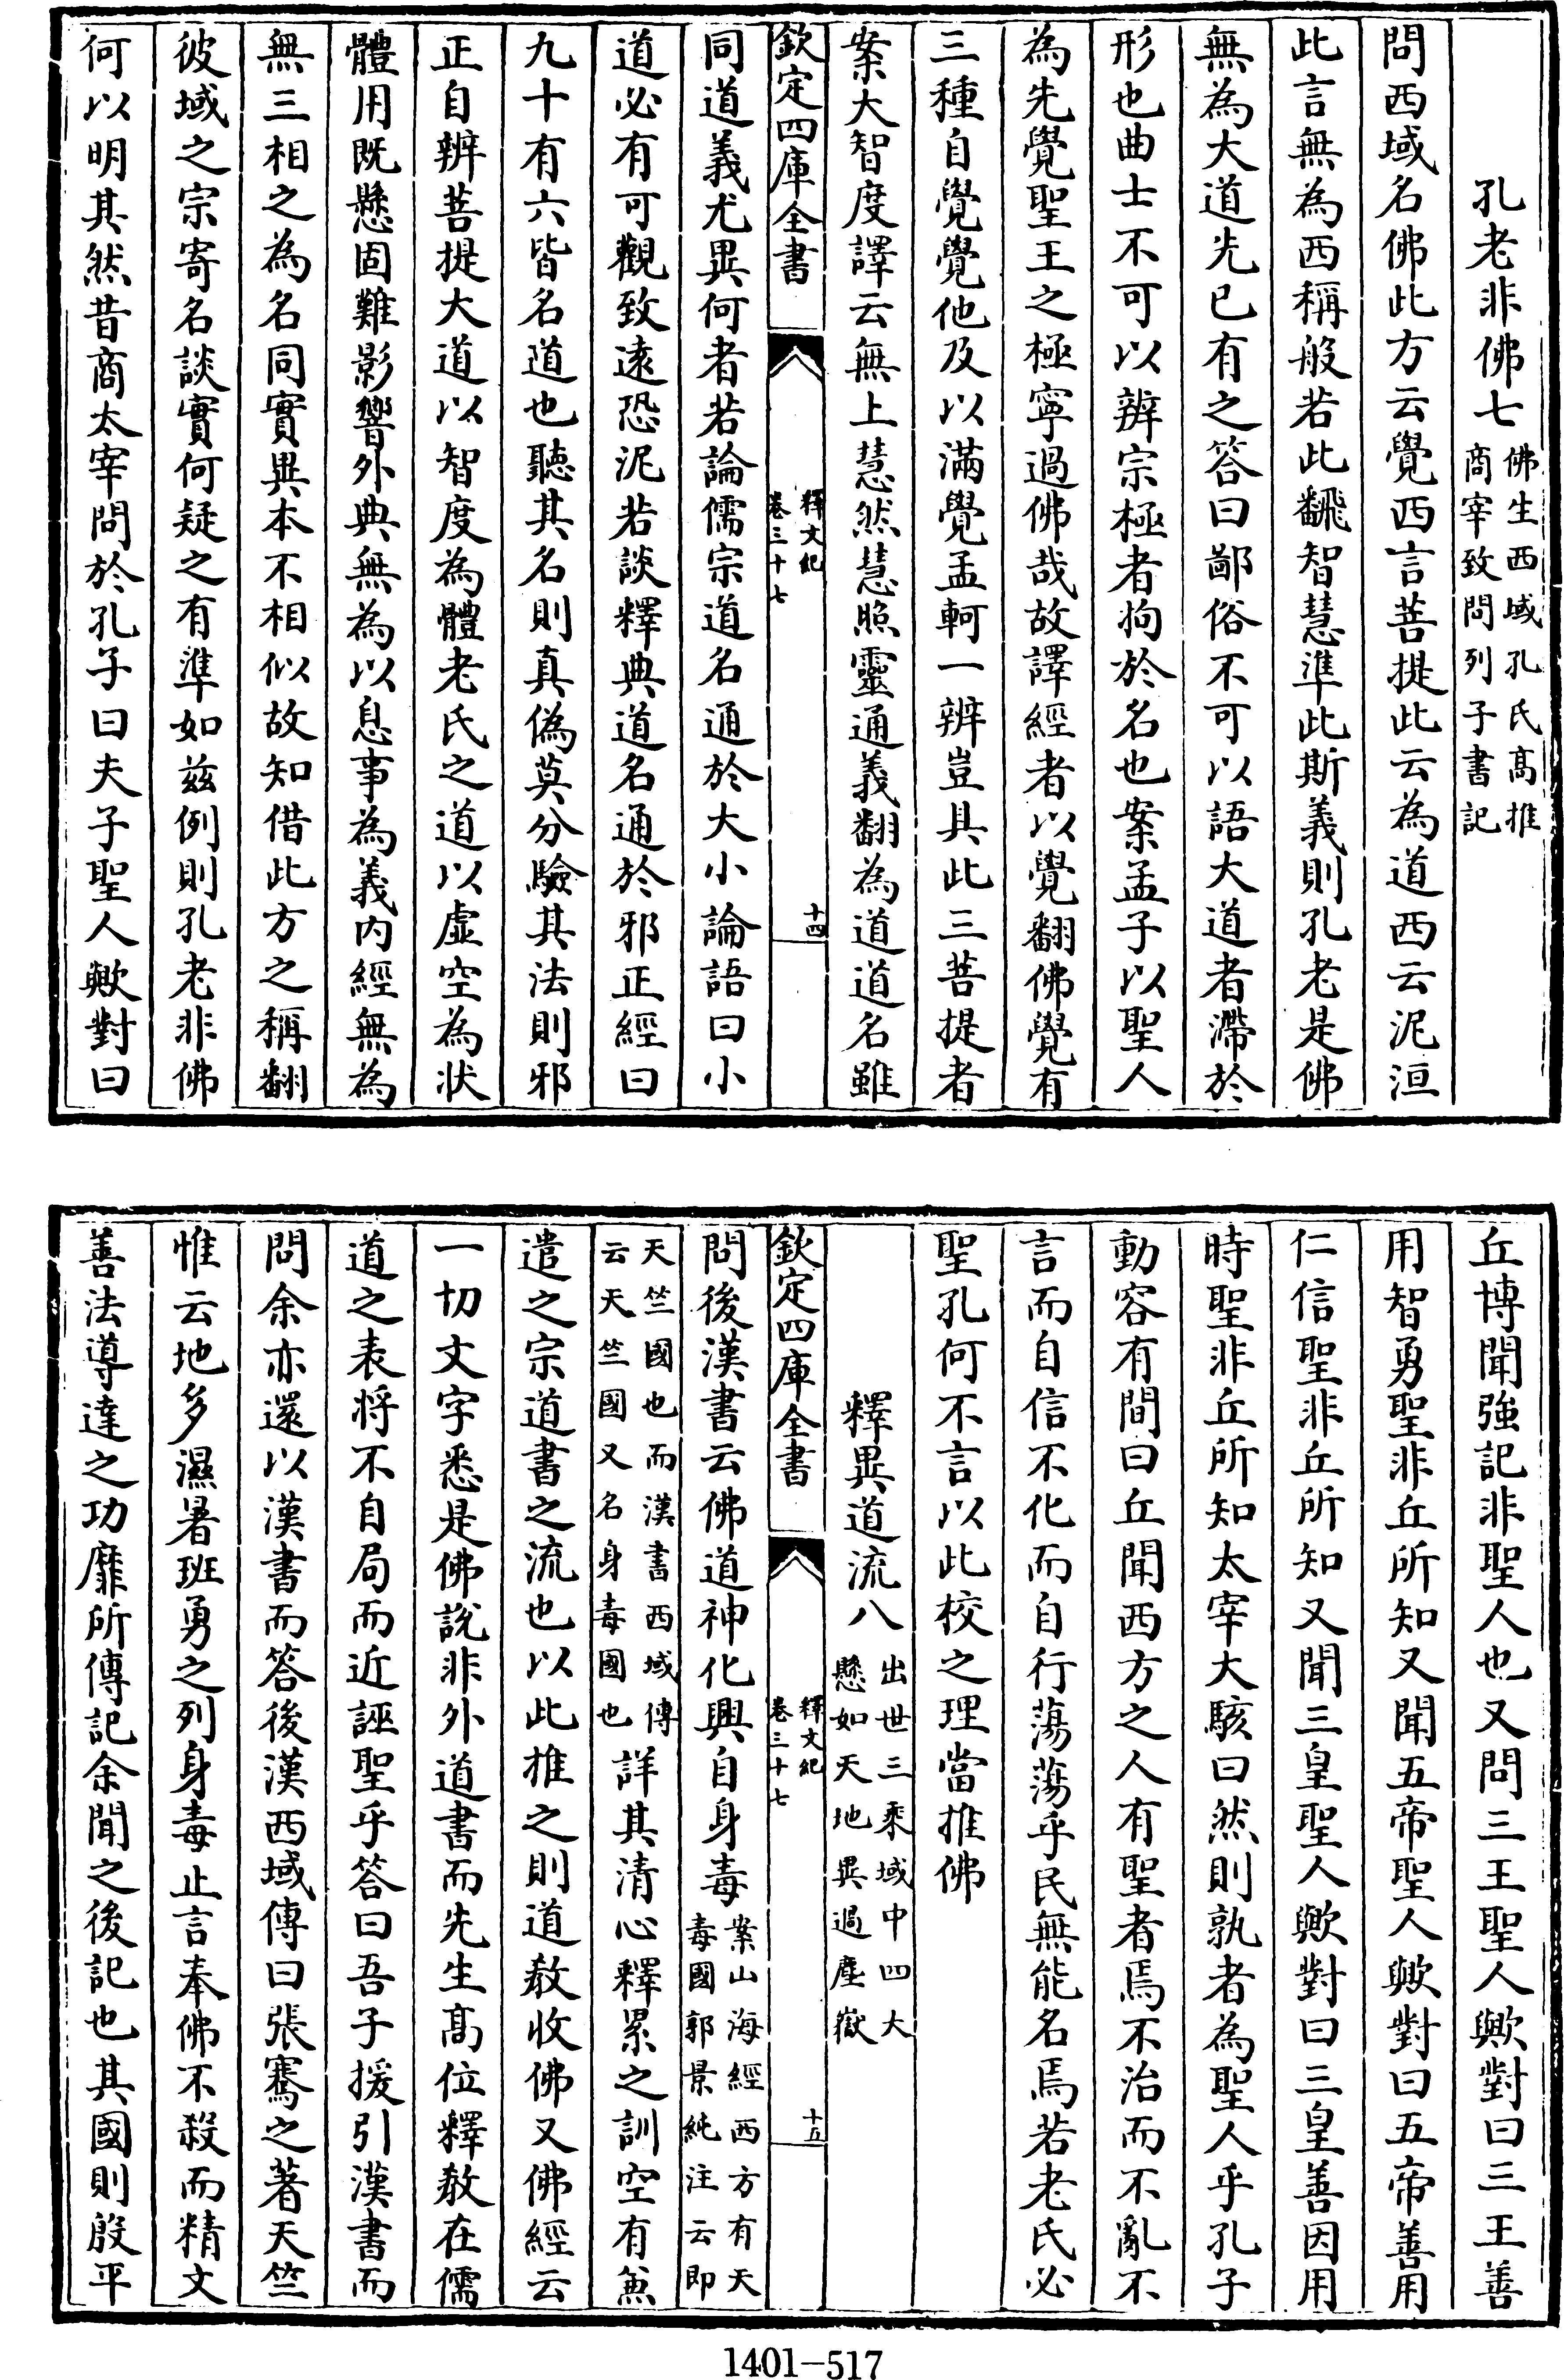 孔老非佛七佛生西域孔氏髙推商宰致問列子書記
問西域名佛此方云覺西言菩提此云為道西云泥洹
此言無為西稱般若此飜智慧準此斯義則孔老是佛
無為大道先已有之答曰鄙俗不可以語大道者滯於
形也曲士不可以辨宗極者拘於名也案孟子以聖人
為先覺聖王之極寧過佛哉故譯經者以覺翻佛覺有
三種自覺覺他及以滿覺孟軻一辨豈具此三菩提者
案大智度譯云無上慧然慧照靈通義翻為道道名雖
欽定四庫全書 釋文紀卷三十七 十四
同道義尤異何者若論儒宗道名通於大小論語曰小
道必有可觀致遠恐泥若談釋典道名通於邪正經曰
九十有六皆名道也聽其名則真偽莫分驗其法則邪
正自辨菩提大道以智度為體老氏之道以虛空為狀
體用既懸固難影響外典無為以息事為義内經無為
無三相之為名同實異本不相似故知借此方之稱翻
彼域之宗寄名談實何疑之有準如兹例則孔老非佛
何以明其然昔商太宰問於孔子曰夫子聖人歟對曰
丘博聞強記非聖人也又問三王聖人歟對曰三王善
用智勇聖非丘所知又聞五帝聖人歟對曰五帝善用
仁信聖非丘所知又聞三皇聖人歟對曰三皇善因用
時聖非丘所知太宰大駭曰然則孰者為聖人乎孔子
動容有間曰丘聞西方之人有聖者焉不治而不亂不
言而自信不化而自行蕩蕩乎民無能名焉若老氏必
聖孔何不言以此校之理當推佛
釋異道流八出世三乘域中四大懸如天地異過塵嶽
欽定四庫全書 釋文紀卷三十七 十五
問後漢書云佛道神化興自身毒案山海經西方有天毒國郭景純注云即
天竺國也而漢書西域傳云天竺國又名身毒國也詳其清心釋累之訓空有兼
遣之宗道書之流也以此推之則道敎收佛又佛經云
一切文字悉是佛說非外道書而先生髙位釋敎在儒
道之表將不自局而近誣聖乎答曰吾子援引漢書而
問余亦還以漢書而答後漢西域傳曰張騫之著天竺
惟云地多濕暑班勇之列身毒止言奉佛不殺而精文
善法導達之功靡所傳記余聞之後記也其國則殷平
1401—517